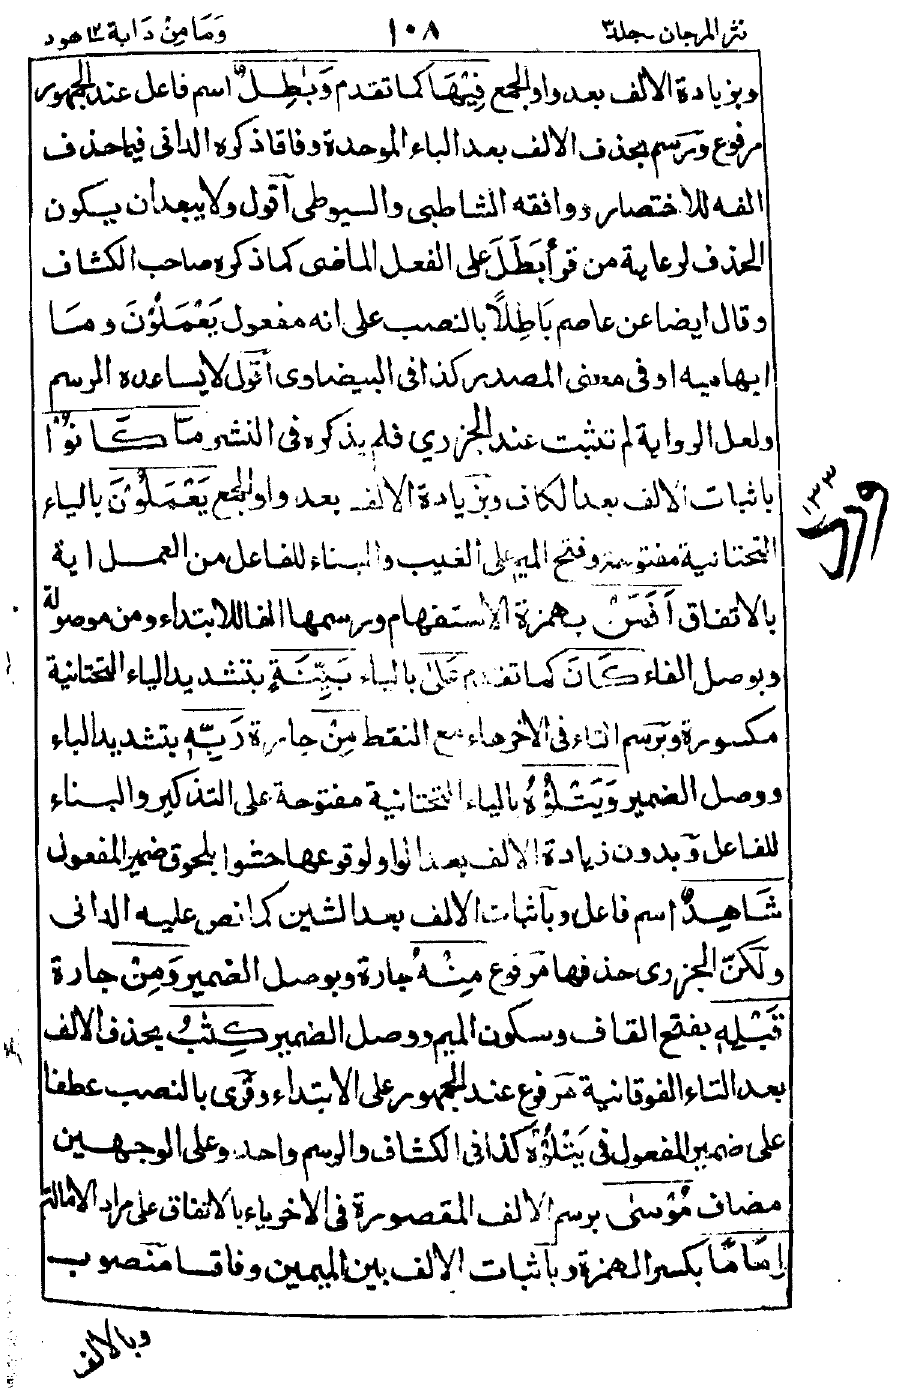 نثر المرجان جلد٣ ١٠٨ وَمَا مِنْ دَابة ١٢ هود
وبزيادة الالف بعد واو الجمع فِيْهَا كما تقدم وَبٰطِلٌ اسم فاعل عند الجمهور
مرفوع ويرسم بحذف الالف بعد الباء الموحدة وفاقا ذكره الدانى فيما حذف
الفه للاختصار ووافقه الشاطبى والسيوطى آقول ولا يبعد ان يكون
الحذف لرعاية من قرأ بَطَلَ على الفعل الماضى كما ذكره صاحب الكشاف
وقال ايضا عن عاصم بَاطِلًا بالنصب على انه مفعول يَعْمَلُوْنَ وما
ابهامية او فى معنى المصدر كذا فى البيضاوى آقول لا يساعده الرسم
ولعل الرواية لم تثبت عند الجزري فلم يذكره فى النشر مَّا كَانُوْا
باثبات الالف بعد الكاف وبزيادة الالف بعد واو الجمع يَعْمَلُوْنَ بالياء
التحتانية مفتوحة وفتح الميم على الغيب والبناء للفاعل من العمل اية
بالاتفاق اَفَمَنْ بهمزة الاستفهام ورسمها الفا للابتداء ومن موصولة
وبوصل الفاء كَانَ كما تقدم عَلٰى بالياء بَيِّنَةٍ بتشديد الياء التحتانية
مكسورة وبرسم التاء فى الأخر هاء مع النقط مِنْ جارة رَبِّهٖ بتشديد الباء
ووصل الضمير وَيَتْلُوْهُ بالياء التحتانية مفتوحة على التذكير والبناء
للفاعل وبدون زيادة الالف بعد الواو لوقوعها حشوا بلحوق ضمير المفعول
شَاهِدٌ اسم فاعل وبآثبات الالف بعد الشين كما نص عليه الدانى
ولكنّ الجزرى حذفها مرفوع مِنْهُ جارة وبوصل الضمير وَمِنْ جارة
قَبْلِهٖ بفتح القاف وسكون الميم ووصل الضمير كِتٰبُ بحذف الالف
بعد التاء الفوقانية مرفوع عند الجمهور على الابتداء وقرى بالنصب عطفا
على ضمير المفعول فى يَتْلُوْهُ كذا فى الكشاف والرسم واحد وعلى الوجهين
مضاف مُوْسٰى برسم الالف المقصورة فى الاخر ياء بالاتفاق على مراد الامالة
اِمَامًا بكسر الهمزة وباثبات الالف بين الميمين وفاقا منصوب
وبالالف